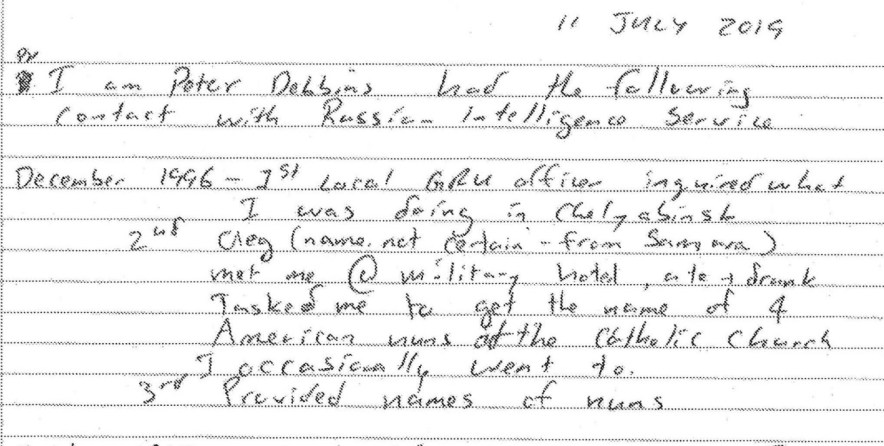 11 JULY 2019
I am Peter Debbins had the following
contact with Russian Intelligence Service
December 1996 - 1st Local GRU officer inquired what
I was doing in Chelyabinsk
2nd Oleg (name not certain - from Samara)
met me @ military hotel, ate + drank
Tasked me to get the name of 4
American nuns at the Catholic Church
I occasionally went to.
3rd Provided names of nuns